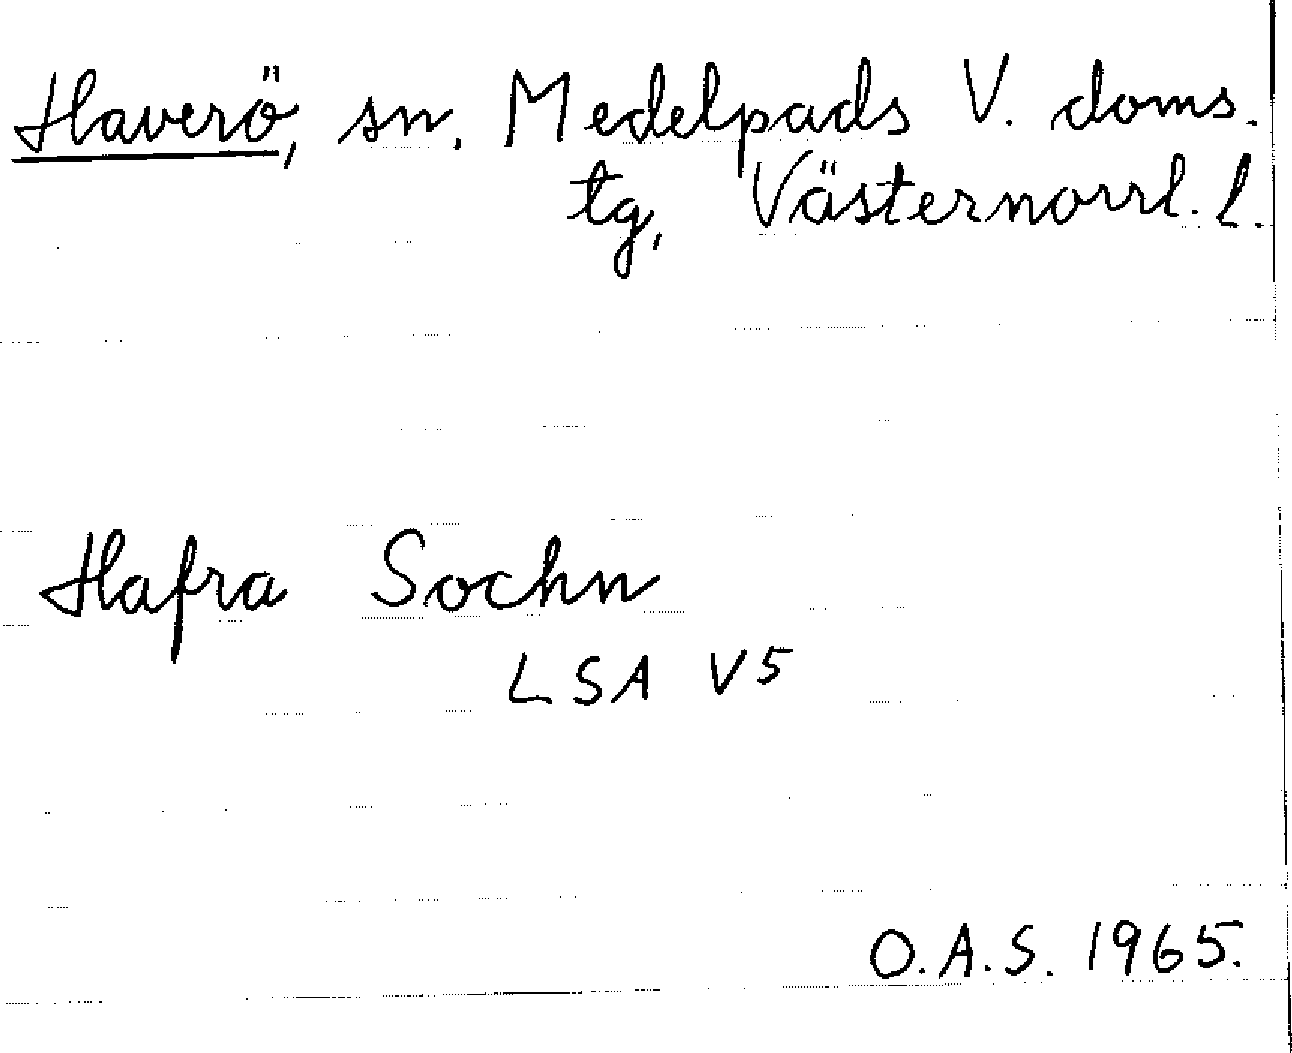 Haverö, sn, Medelpads V. doms.
tg, Västernorrl. l.
Hafra Sochn
LSA V5
O.A.S. 1965.